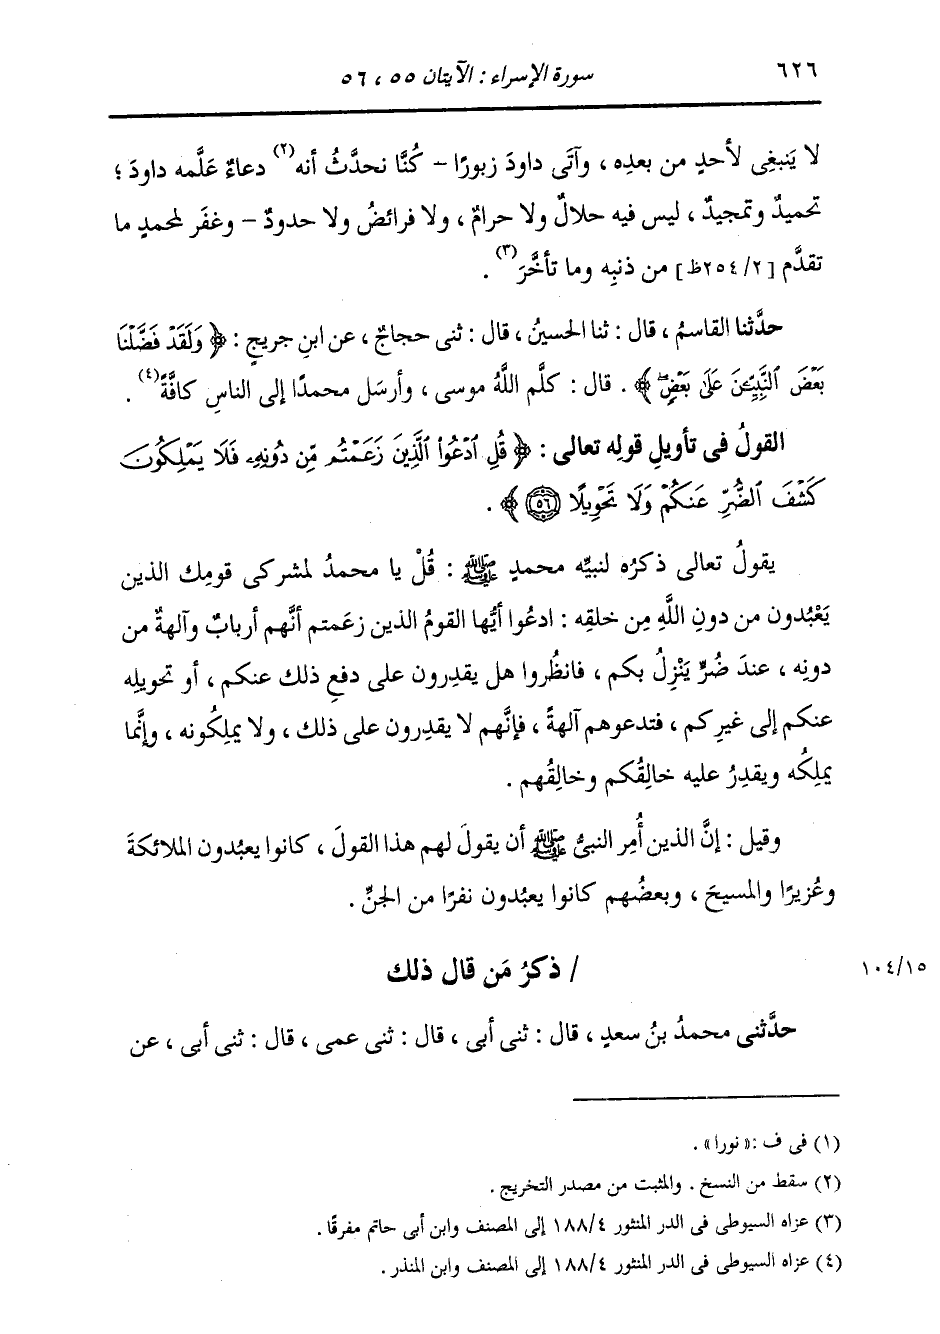 ٦٢٦
سورة الإسراء : الآيتان ٥٥ ، ٥٦
لا يَنبغِى لأحدٍ من بعدِه ، وآتَى داودَ زبورًا – كُنَّا نحدَّثُ أنه(٢) دعاءٌ عَلَّمه داودَ ؛
تحميدٌ وتمجيدٌ ، ليس فيه حلالٌ ولا حرامٌ ، ولا فرائضُ ولا حدودٌ – وغفَر لمحمدٍ ما
تقدَّم [٢٥٤/٢ظ] من ذنبِه وما تأخَّرَ(٣) .
حدَّثنا القاسمُ ، قال : ثنا الحسينُ ، قال : ثنى حجاجٌ ، عن ابنِ جريجٍ : ﴿ وَلَقَدْ فَضَّلْنَا
بَعْضَ ٱلنَّبِيِّـۧنَ عَلَىٰ بَعْضٍۖ ﴾ . قال : كلَّم اللَّهُ موسى ، وأرسَل محمدًا إلى الناسِ كافَّةً(٤) .
القولُ فى تأويلِ قولِه تعالى : ﴿ قُلِ ٱدْعُوا۟ ٱلَّذِينَ زَعَمْتُم مِّن دُونِهِۦ فَلَا يَمْلِكُونَ
كَشْفَ ٱلضُّرِّ عَنكُمْ وَلَا تَحْوِيلًا ٥٦ ﴾ .
يقولُ تعالى ذكرُه لنبيِّه محمدٍ ﷺ : قُلْ يا محمدُ لمشركى قومِك الذين
يَعْبُدون من دونِ اللَّهِ مِن خلقِه : ادعُوا أيُّها القومُ الذين زعَمتم أنَّهم أربابٌ وآلهةٌ من
دونِه ، عندَ ضُرٍّ يَنْزِلُ بكم ، فانظُروا هل يقدِرون على دفعِ ذلك عنكم ، أو تحويلِه
عنكم إلى غيرِكم ، فتدعوهم آلهةً ، فإنَّهم لا يقدِرون على ذلك ، ولا يملِكُونه ، وإنَّما
يملِكُه ويقدِرُ عليه خالِقُكم وخالِقُهم .
وقيل : إنَّ الذين أُمِر النبىُّ ﷺ أن يقولَ لهم هذا القولَ ، كانوا يعبُدون الملائكةَ
وعُزيرًا والمسيحَ ، وبعضُهم كانوا يعبُدون نفرًا من الجنِّ .
١٠٤/١٥
/ ذكرُ مَن قال ذلك
حدَّثنى محمدُ بنُ سعدٍ ، قال : ثنى أبى ، قال : ثنى عمى ، قال : ثنى أبى ، عن
(١) فى ف : « نورا » .
(٢) سقط من النسخ . والمثبت من مصدر التخريج .
(٣) عزاه السيوطى فى الدر المنثور ١٨٨/٤ إلى المصنف وابن أبى حاتم مفرقًا .
(٤) عزاه السيوطى فى الدر المنثور ١٨٨/٤ إلى المصنف وابن المنذر .